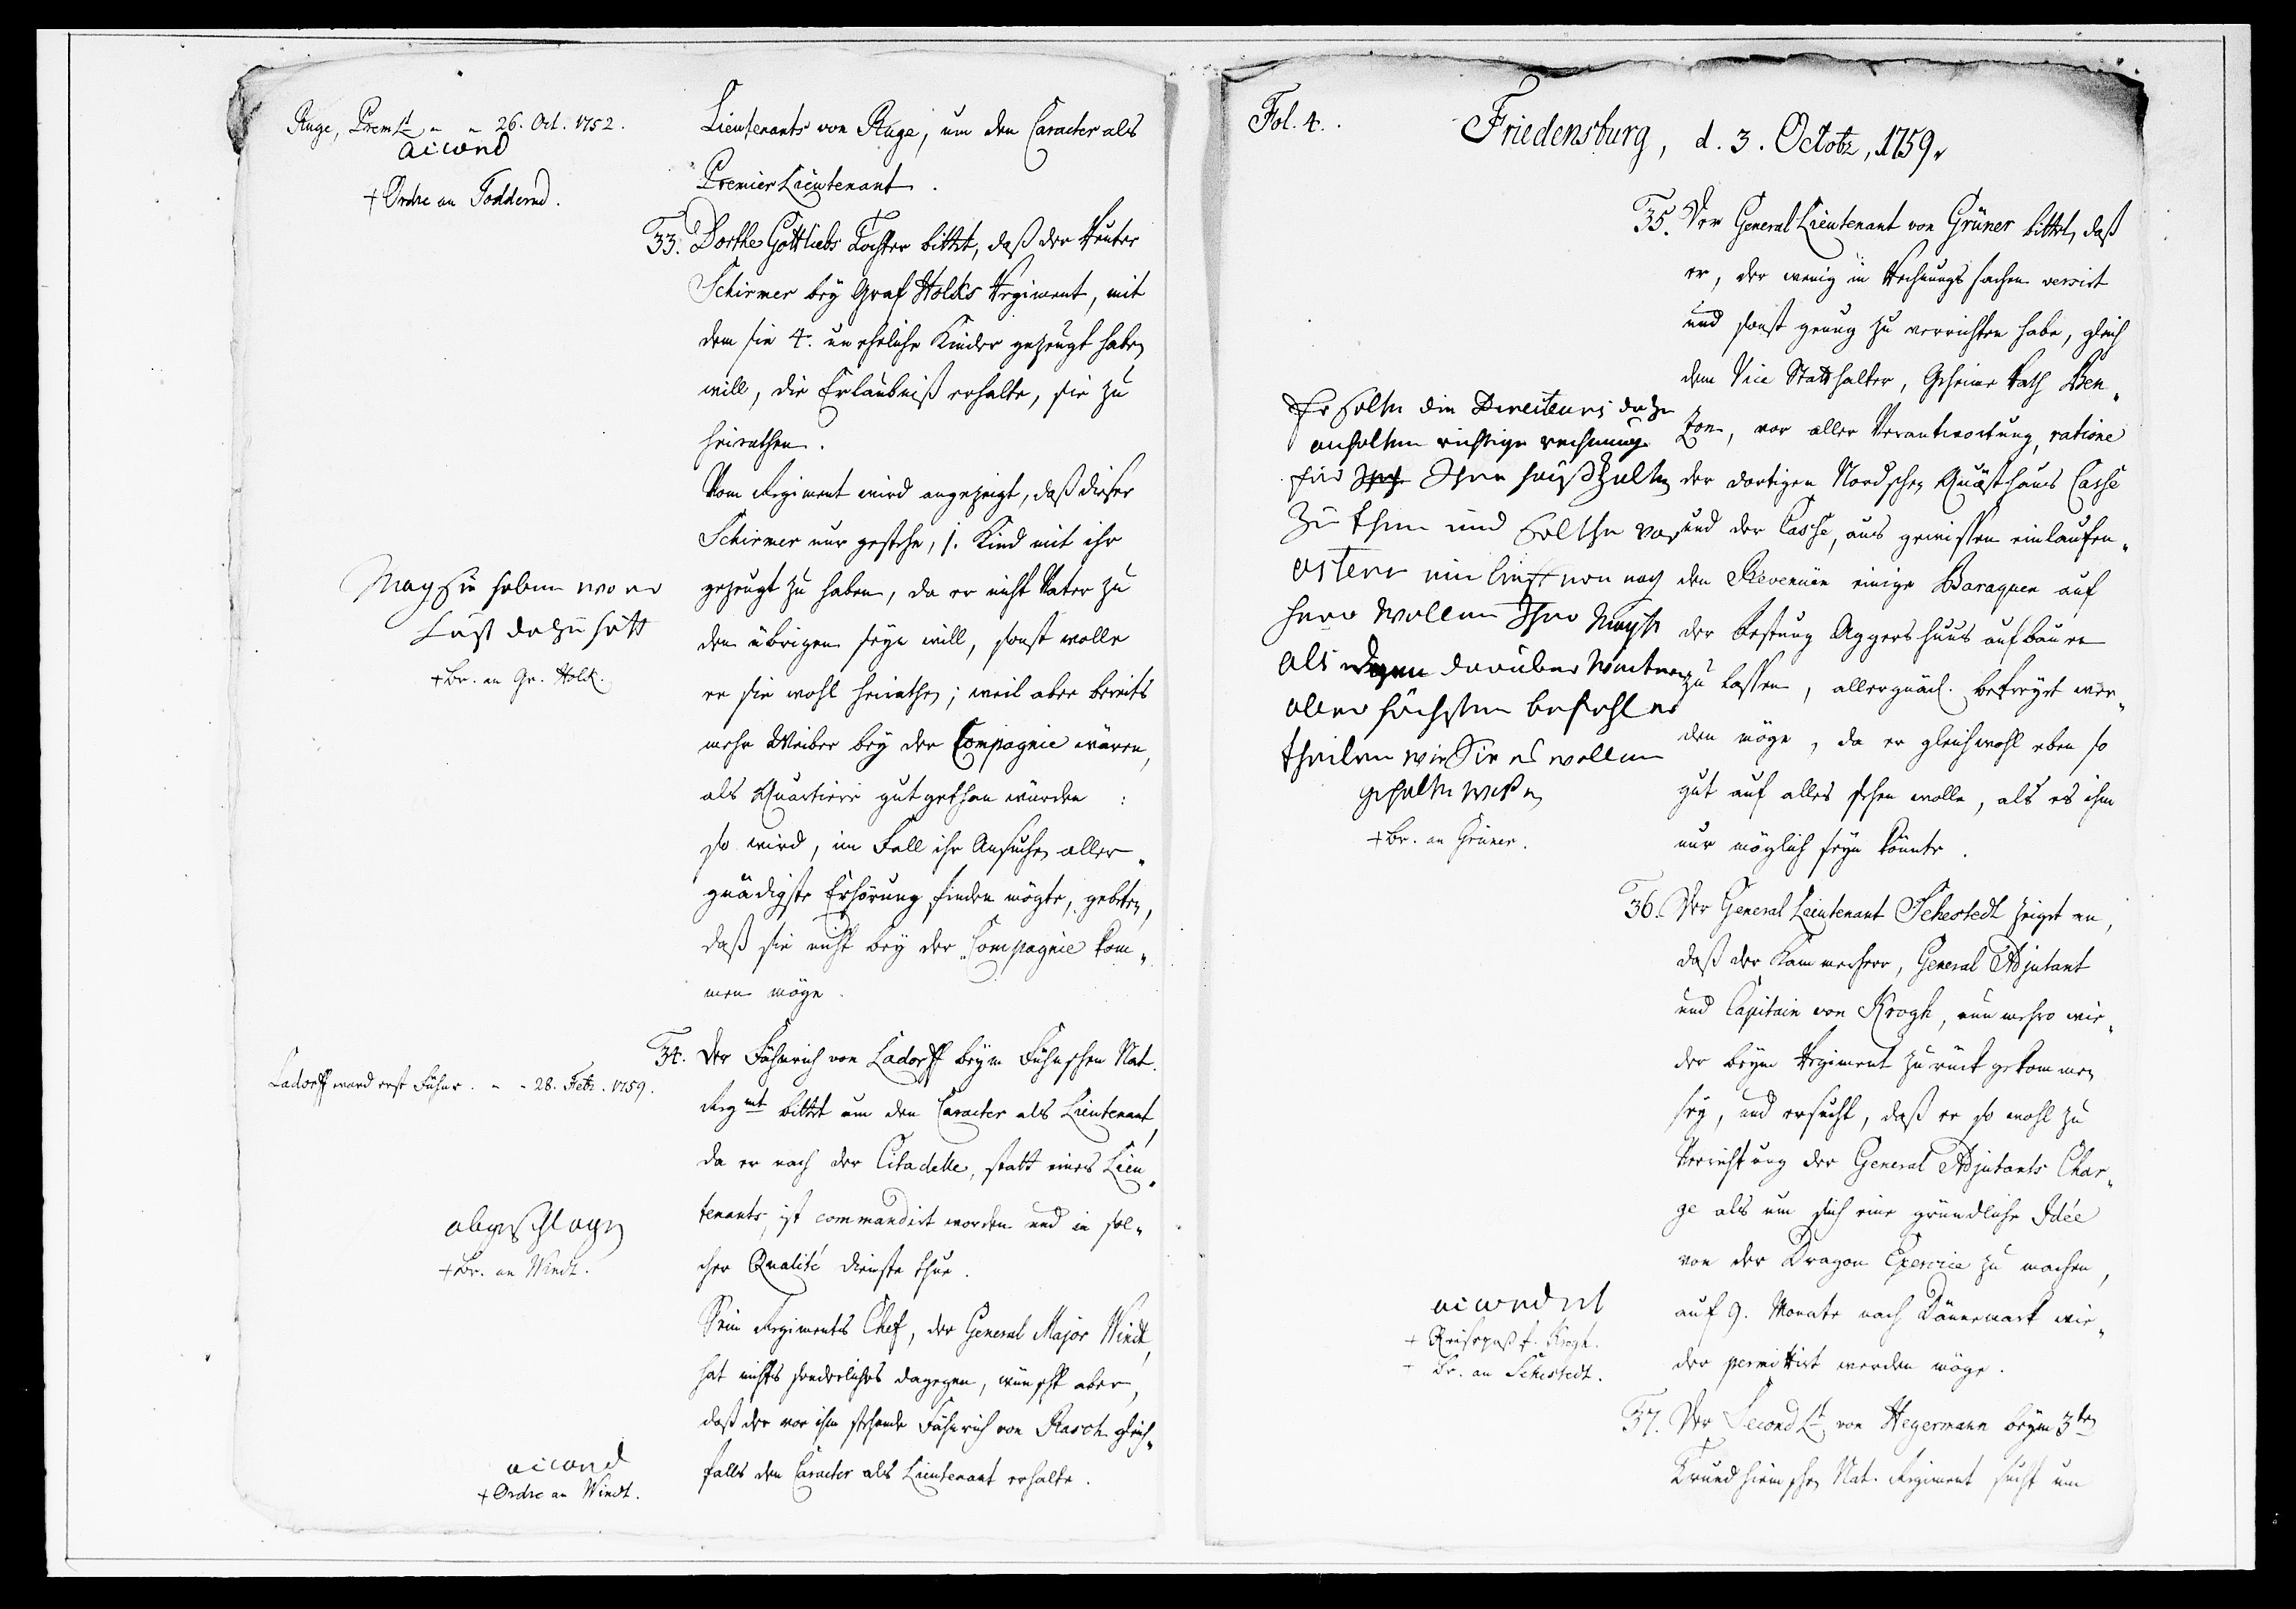 Ruge, Prem Lt - - 26. Oct. 1752.
accord
+ Ordre an Fodderne.
Lieutenants von Ruge, um den Caracter als
Premier Lieutenant.
33. Dorthe Gottliebs Tochter bittet, daß der Reuter
Schirmer bey Graf Holks Regiment, mit
dem sie 4. uneheliche Kinder gezeugt haben
will, die Erlaubniß erhalte, sie zu
heirathen.
Vom Regiment wird angezeigt, daß dieser
Schirmer nur gestehe, 1. Kind mit ihr
gezeugt zu haben, da er nicht Vater zu
den übrigen seyn will, sonst wolle
er sie wohl heirathen; weil aber bereits
mehr Weiber bey der Compagnie wären,
als Quartiere gut gethan würden:
so wird, im Fall ihr Ansuchen aller„
gnädigste Erhörung finden mögte, gebeten,
daß sie nicht bey der Compagnie kom„
men möge.
Mag sie haben wo er
Lust dazu hatt
+ Br. an Gr. Holck.
34. Der Fähnrich von Ladorff beym Fühnschen Nat.
Regmt bittet um den Caracter als Lieutenant,
da er nach der Citadelle, statt eines Lieu„
tenants, ist commandirt worden und in sol„
cher Qualité Dienste thue.
Sein Regiments Chef, der General Major Windt,
hat nichts sonderliches dagegen, wünscht aber,
daß der vor ihm stehende Fähnrich von Rasch gleich„
falls den Caracter als Lieutenant erhalte.
Ladorff ward erst Fähnr. - - 28. Febr. 1759.
abgeschlagen
+ Br. an Windt.
accord
+ Ordre an Windt.
Fol. 4.
Friedensburg, d. 3. Octobr, 1759.
35. Der General Lieutenant von Grüner bittet, daß
er, der wenig in Rechnungs sachen versirt
und sonst genug zu verrichten habe, gleich
dem Vice Statthalter, Geheime Rath Ben„
zon, vor aller Verantwortung, ratione
der dortigen Nordschen Quästhaus Casse
und der Casse, aus gewissen einlaufen„
den Revenüen einige Baraquen auf
der Vestung Aggershuus aufbauen
zu lassen, allergnäd. befreyet wer„
den möge, da er gleichwohl eben so
gut auf alles sehen wolle, als es ihm
nur möglich seyn könnte.
Er solte die Directeurs dazu
anhalten richtige rechnung
für Ihre haußhalten
zu thun und solche vor
ostern einliefferen nach
hero wollen Ihro Mayt
als dan darüber weitern
aller höchsten befehl er
theilen wie Sie es wollen
gehalten wißen
+ Br. an Grüner.
36. Der General Lieutenant Sehestedt zeiget an,
daß der Kammerherr, General Adjutant
und Capitain von Krogh, nunmehro wie„
der beym Regiment zurück gekommen
sey, und ersucht, daß er so wohl zu
Verrichtung der General Adjutants Char„
ge als um sich eine gründliche Idée
von der Dragon Exercice zu machen,
auf 9. Monate nach Dännemark wie„
der permittirt werden möge.
accordert
+ Reisepaß f. Krogh.
+ Br. an Sehestedt.
37. Der Second Lt von Hegermann beym 3ten
Trundhiemschen Nat. Regiment sucht um